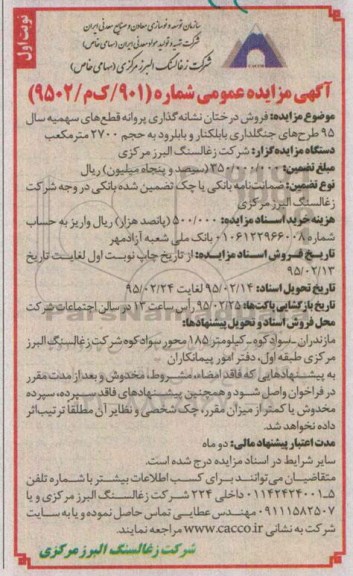 نوبت اول
سازمان توسعه و نوسازی معادن و صنایع معدنی ایران
شرکت تهیه و تولید مواد معدنی ایران (سهامی خاص)
شرکت زغالسنگ البرز مرکزی (سهامی خاص)
آگهی مزایده عمومی شماره (۹۰۱/ک‌م/۹۵۰۲)
موضوع مزایده: فروش درختان نشانه‌گذاری پروانه قطع‌های سهمیه سال
۹۵ طرح‌های جنگلداری بابلکنار و بابلرود به حجم ۲۷۰۰ مترمکعب
دستگاه مزایده‌گزار: شرکت زغالسنگ البرز مرکزی
مبلغ تضمین: ۳۵۰/۰۰۰/۰۰۰ (سیصد و پنجاه میلیون) ریال
نوع تضمین: ضمانت‌نامه بانکی یا چک تضمین شده بانکی در وجه شرکت
زغالسنگ البرز مرکزی
هزینه خرید اسناد مزایده: ۵۰۰/۰۰۰ (پانصد هزار) ریال واریز به حساب
شماره ۰۱۰۶۱۲۲۹۶۶۰۰۸ بانک ملی شعبه آزادمهر
تاریخ فروش اسناد مزایده: از تاریخ چاپ نوبت اول لغایت تاریخ
۹۵/۰۲/۱۳
تاریخ تحویل اسناد: ۹۵/۰۲/۱۴ لغایت ۹۵/۰۲/۲۴
تاریخ بازگشایی پاکت‌ها: ۹۵/۰۲/۲۵ رأس ساعت ۱۳ در سالن اجتماعات شرکت
محل فروش اسناد و تحویل پیشنهادها:
مازندران-سوادکوه-کیلومتر ۱۸۵ محور سوادکوه شرکت زغالسنگ البرز
مرکزی طبقه اول، دفتر امور پیمانکاران
به پیشنهادهایی که فاقد امضاء، مشروط، مخدوش و بعد از مدت مقرر
در فراخوان واصل شود و همچنین پیشنهادهای فاقد سپرده، سپرده
مخدوش یا کمتر از میزان مقرر، چک شخصی و نظایر آن مطلقا ترتیب‌اثر
داده نخواهد شد.
مدت اعتبار پیشنهاد مالی: دو ماه
سایر شرایط در اسناد مزایده درج شده است.
متقاضیان می‌توانند برای کسب اطلاعات بیشتر با شماره تلفن
۵-۰۱۱۴۲۴۲۴۰۰۱ داخلی ۲۲۴ شرکت زغالسنگ البرز مرکزی و یا
۰۹۱۱۱۵۸۲۵۰۷ مهندس عطایی تماس حاصل نموده و یا به سایت
شرکت به نشانی www.cacco.ir مراجعه نمایند.
شرکت زغالسنگ البرز مرکزی